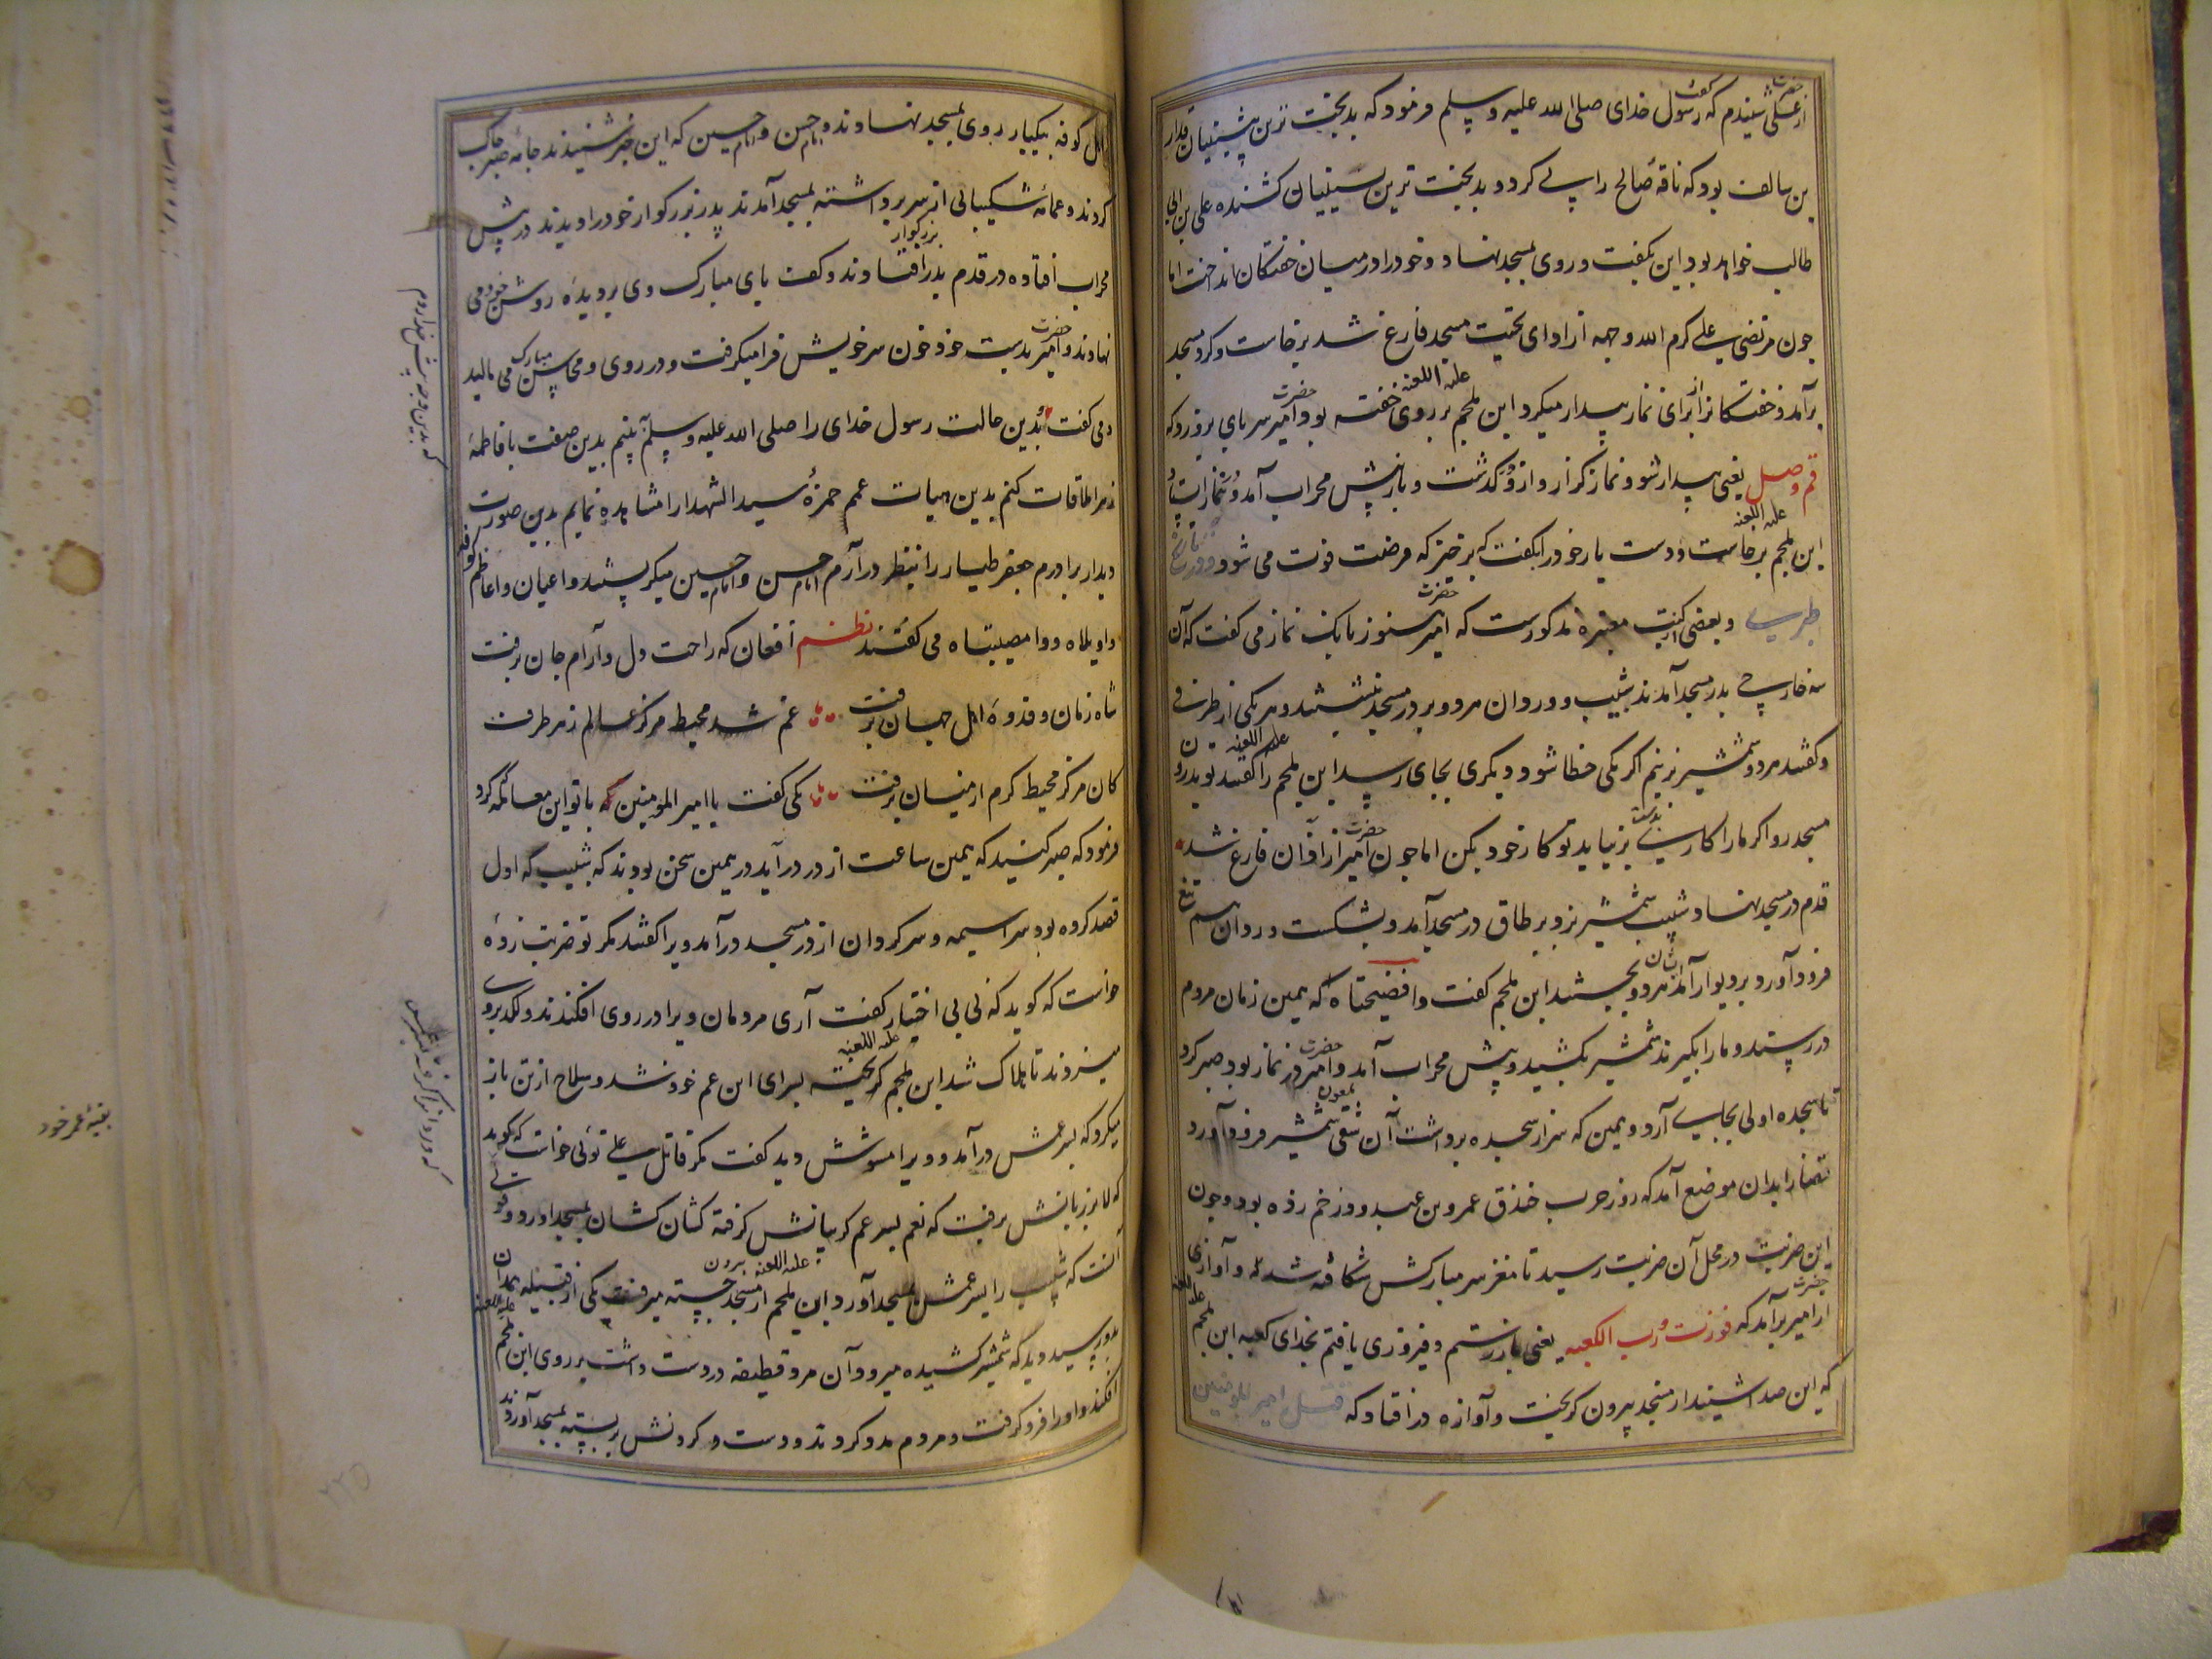 از حضرت علی شنیدم که گفت رسول خدای صلی الله علیه وسلم فرمود که بدبخت ترین پیشینیان قدار
بن سالف بود که ناقهٔ صالح را پی کرد و بدبخت ترین پسینیان کشنده علی بن ابی
طالب خواهد بود این بگفت و روی بمسجد نهاد و خود را در میان خفتگان انداخت اما
چون مرتضی علی کرم الله وجهه از ادای تحیت مسجد فارغ شد برخاست و گرد مسجد
برآمد و خفتگانرا از برای نماز بیدار میکرد ابن ملجم علیه اللعنه بر روی خفته بود حضرت امیر سر پای برو زد که
قم وصل یعنی بیدار شو و نماز گزار و ازو گذشت و باز پیش محراب آمد و بنماز ایستاد
ابن ملجم علیه اللعنه برخاست و دست یار خود را بگفت که برخیز که فرصت فوت می شود و در تاریخ
طبری و بعضی از کتب معتبره مذکورست که حضرت امیر هنوز بانک نماز می گفت که آن
سه خارجی بدر مسجد آمدند شبیب و وردان هر دو بر در مسجد بنشستند و هر یکی از طرفی
و گفتند هر دو شمشیر بزنیم اگر یکی خطا شود دیگری بجای رسد ابن ملجم علیه اللعنه را گفتند تو بدرون
مسجد رو اگر ما را کاری بدست بر نیاید تو کار خود بکن اما چون حضرت امیر از اذان فارغ شد
قدم در مسجد نهاد شبیب شمشیر بزد بر طاق در مسجد آمد و بشکست وردان هم تیغ
فرود آورد بر دیوار آمد ایشان هر دو بجستند ابن ملجم گفت وافضیحتاه که همین زمان مردم
در رسند و ما را بگیرند شمشیر بکشید و پیش محراب آمد و حضرت امیر در نماز بود صبر کرد
تا سجده اولی بجای آرد و همین که سر از سجده برداشت آن شقی ملعون شمشیر فرود آورد
قضا را بدان موضع آمد که روز حرب خندق عمرو بن عبدود زخم زده بود و چون
این ضربت در محل آن ضربت رسید تا مغز سر مبارکش شکافته شد و آوازی
از حضرت امیر برآمد که فوزت و رب الکعبه یعنی باز رستم و فیروزی یافتم بخدای کعبه ابن ملجم علیه اللعنه
که این صدا شنید از مسجد بیرون گریخت و آوازه در افتاد که قتل امیر المومنین
اهل کوفه بیکبار روی بمسجد نهادند و امام حسن و امام حسین که این خبر شنیدند جامه صبر چاک
کردند و عمامهٔ شکیبائی از سر برداشته بمسجد آمدند پدر بزرگوار خود را دیدند در پیش
محراب افتاده در قدم پدر بزرگوار افتادند و کف پای مبارک وی بر دیدهٔ روشن خود می
نهادند و حضرت امیر بدست خود خون سر خویش فرا میگرفت و در روی و محاسن مبارک می مالید
و می گفت بدین حالت رسول خدای را صلی الله علیه وسلم بینم بدین صفت با فاطمهٔ
زهرا ملاقات کنم بدین هیات عمم حمزهٔ سید الشهدا را مشاهده نمایم بدین صورت
دیدار برادرم جعفر طیار را بنظر در آرم امام حسن و امام حسین میگریستند و اعیان و اعاظم کوفه
واویلاه و وامصیبتاه می گفتند نظم افغان که راحت دل و آرام جان برفت
شاه زمان و قدوهٔ اهل جهان برفت غم شد محیط مرکز عالم ز هر طرف
کان مرکز محیط کرم از میان برفت یکی گفت یا امیر المومنین که با تو این معامله کرد
فرمود که صبر کنید که همین ساعت از در در آید در همین سخن بودند که شبیب که اول
قصد کرده بود سراسیمه و سرگردان از در مسجد درآمد ویرا گفتند مگر تو ضربت زدهٔ
خواست که گوید که نی بی اختیار گفت آری مردمان ویرا در روی افکندند و لگد بروی
میزدند تا هلاک شد ابن ملجم علیه اللعنه گریخته بسرای ابن عم خود شد و سلاح از تن باز
میکرد که پسر عمش درآمد و ویرا مشوش دید گفت مگر قاتل علی توئی خواست که گوید
که لا بر زبانش برفت که نعم پسر عم گریبانش گرفته کشان کشان بمسجد آورد و قولی
آنست که شبیب را پسر عمش بمسجد آورد ابن ملجم علیه اللعنه از مسجد بیرون جسته میرفت یکی از قبیله همدان
بدو رسید دید که شمشیر کشیده میرود آن مرد قطیفه در دست داشت بر روی ابن ملجم علیه اللعنه
افکند و او را فرو گرفت و مردم مدد کردند و دست و گردنش بر بسته بمسجد آوردند
که بدین وجه پیش
بقیهٔ عمر خود
۲۲۵